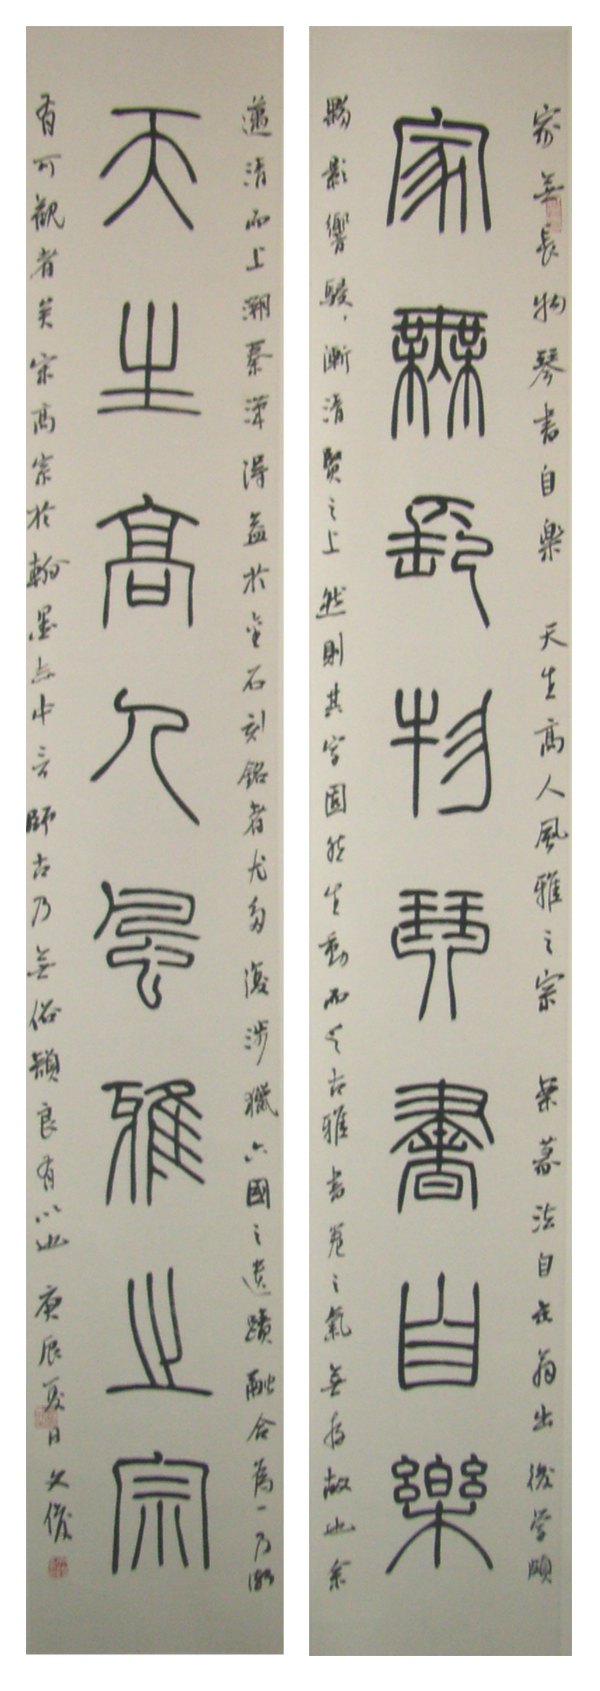 家無長物琴書自樂 天生高人風雅之宗 慕法自在翁出後學頗
家無長物琴書自樂
夥影響駸駸漸清賢之上然則其字固然生動而乏古雅書卷之氣無故也余
邁清而上溯秦漢得益於金石刻銘者尤多復涉獵六國之遺蹟融合為一乃漸
天生高人風雅之宗
有可觀者矣宋高宗於翰墨志中言師古乃無俗韻良有以也 庚辰夏日文俊